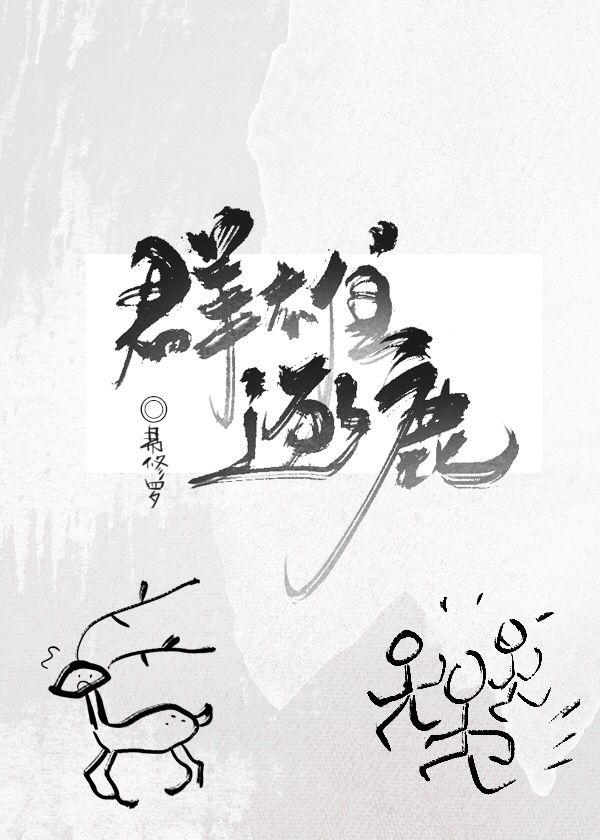 群雄
逐鹿
◎易修罗